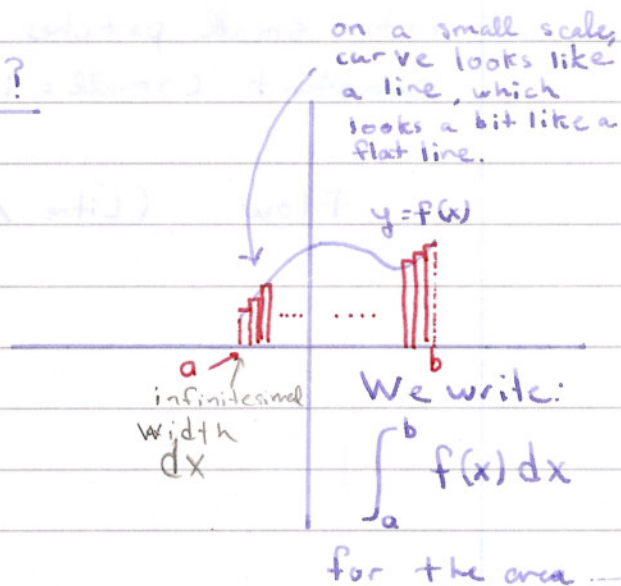 on a small scale,
curve looks like
a line, which
looks a bit like a
flat line.
?
y=f(x)
a
b
infinitesimal
width
dx
We write:
∫_a^b f(x) dx
for the area